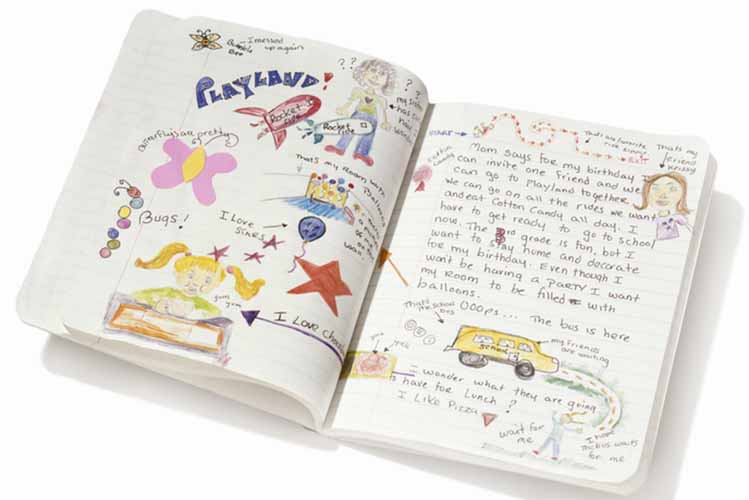 I messed
Bumble up again
Bee
PLAYLAND!
? ?
?
?
my sister
has curly
hair
Rocket
ride
Rocket
ride
Butterfly's are pretty
That's my Room with
Balloons
Bugs!
I Love
stars
on the
wall
yum
yum
I Love
START
That's my favorite
ride
EXIT
That's my
friend
Krissy
Cotton
Candy
Mom says for my birthday I
can invite one friend and we
can go to Playland together.
We can go on all the rides we want
and eat Cotton Candy all day. I
have to get ready to go to school
now. The 3rd grade is fun, but I
want to stay home and decorate
for my birthday. Even though I
won't be having a PARTY I want
my Room to be filled with
balloons.
OOOps... The bus is here
That's the school
bus
school
my friends
are waiting
I wonder what they are going
to have for Lunch?
I Like Pizza
wait for
me
I hope
the bus waits
for me